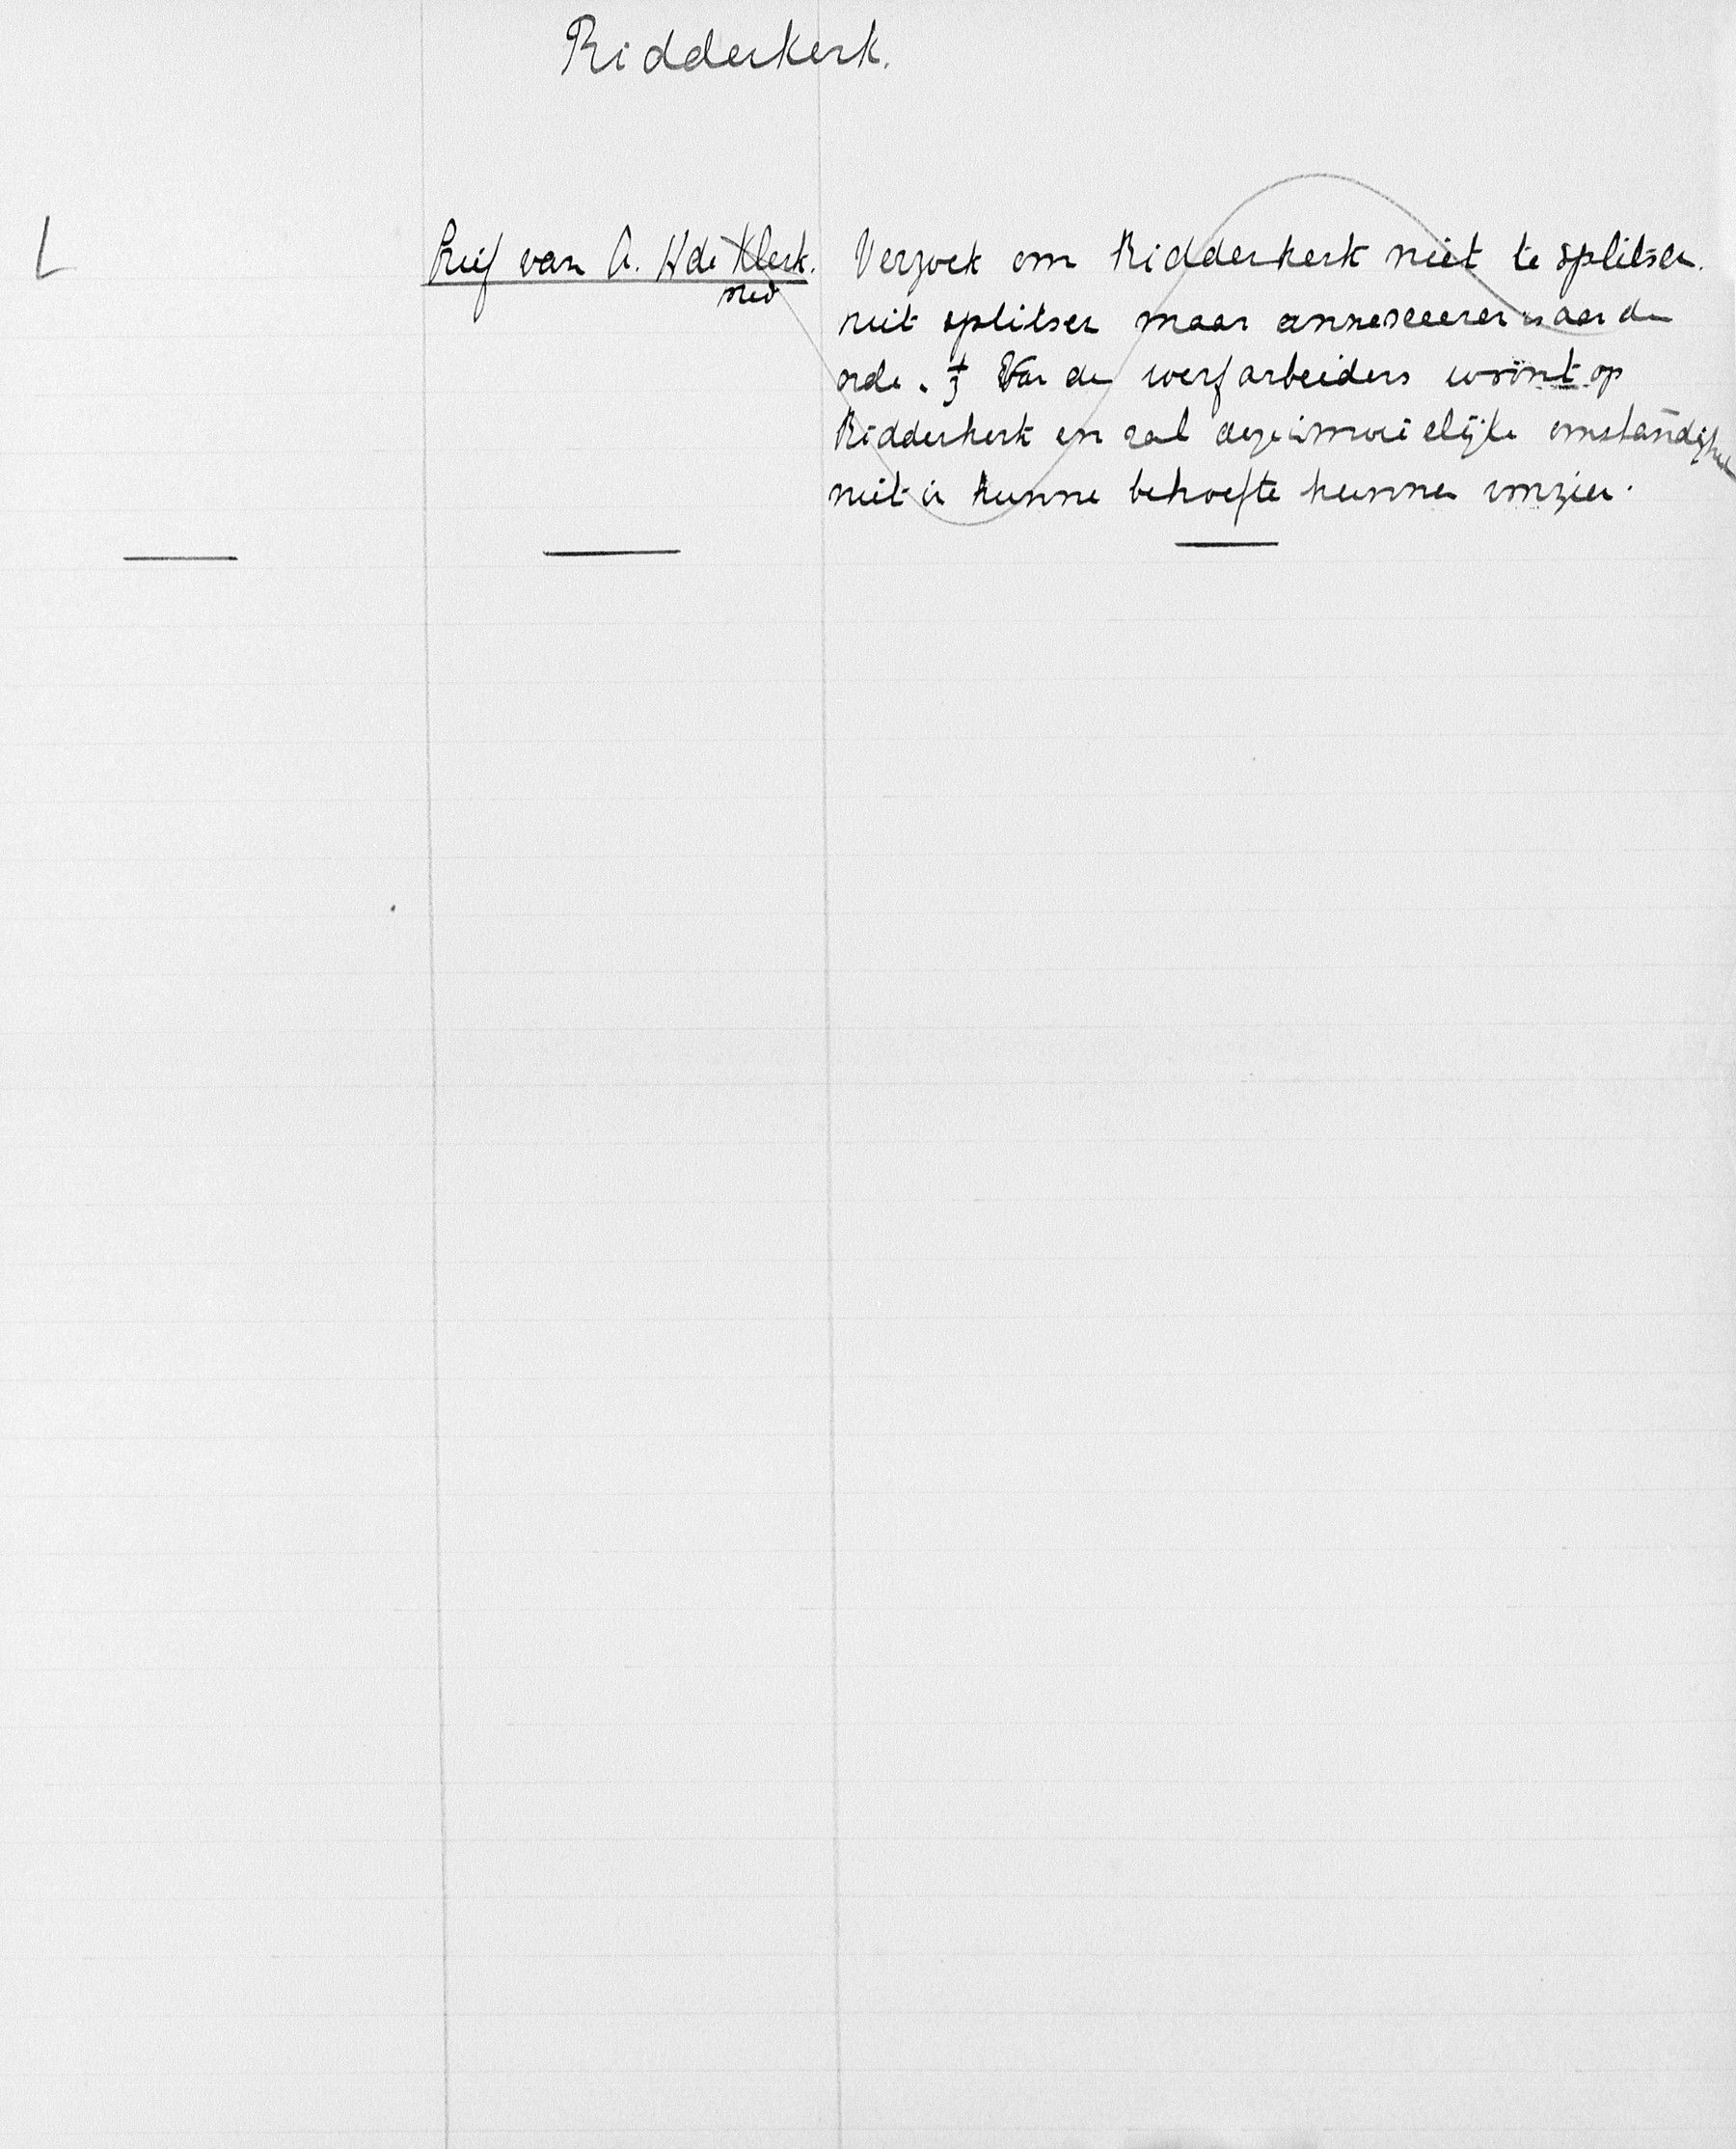 Ridderkerk.
L
Brief van A. H de Klerk.
Verzoek om Ridderkerk niet te splitsen.
niet splitsen maar annexeeren is aan de
orde. 1/3 Van de werfarbeiders woont op
Ridderkerk en zal deze in moeielijke omstandigheden
niet in hunne behoefte kunnen voorzien.